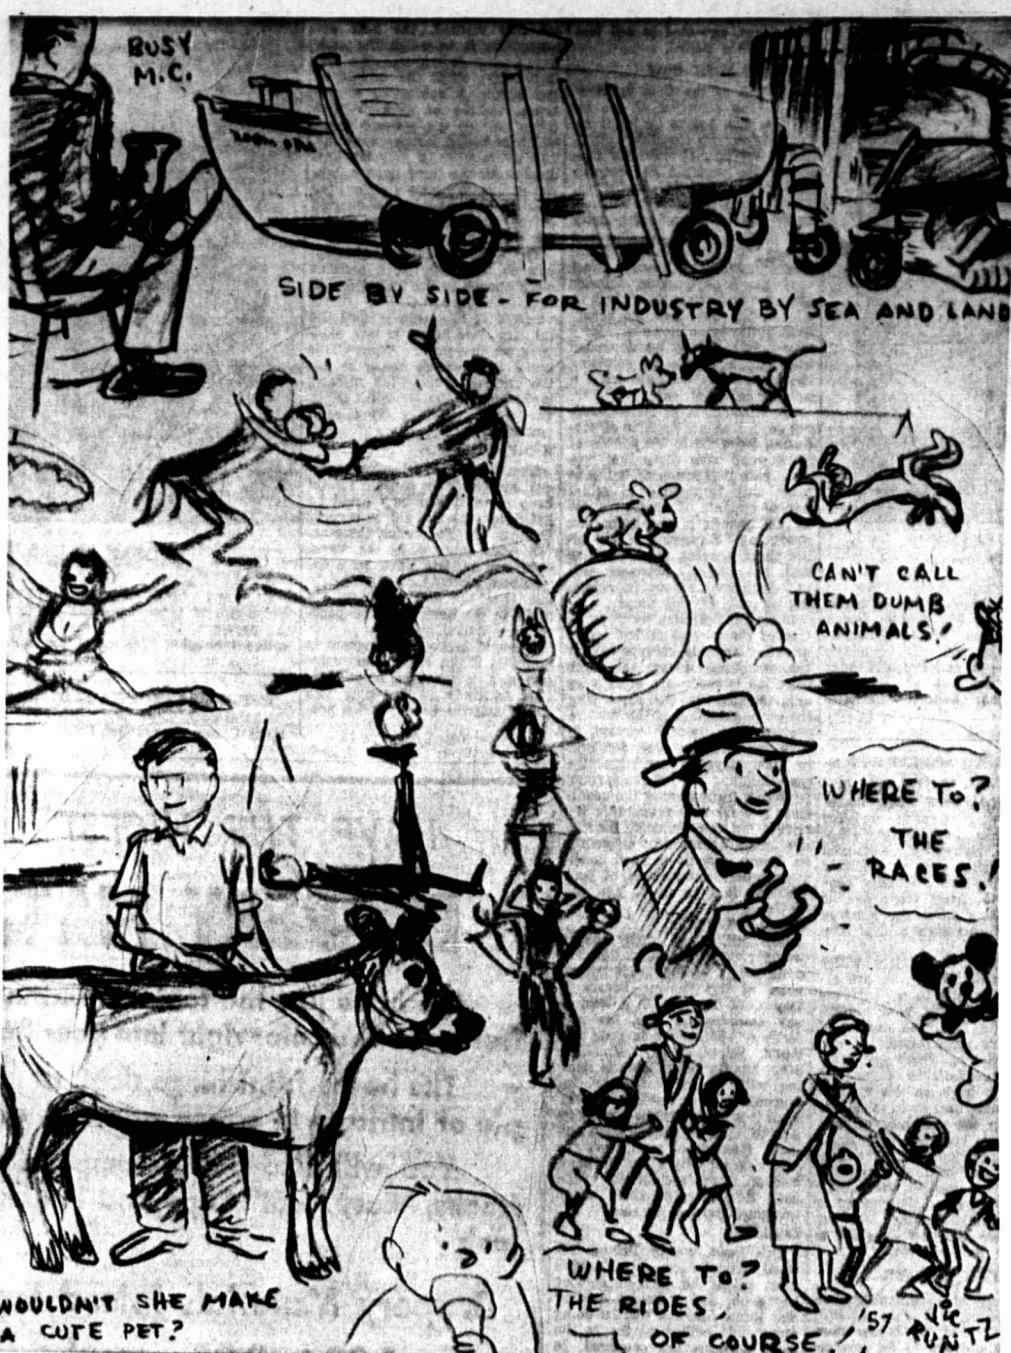 BUSY
M.C.
SIDE BY SIDE - FOR INDUSTRY BY SEA AND LAND
CAN'T CALL
THEM DUMB
ANIMALS!
WHERE TO?
THE
RACES!
WOULDN'T SHE MAKE
A CUTE PET?
WHERE TO?
THE RIDES,
OF COURSE!
'57 VIC
RUNTZ